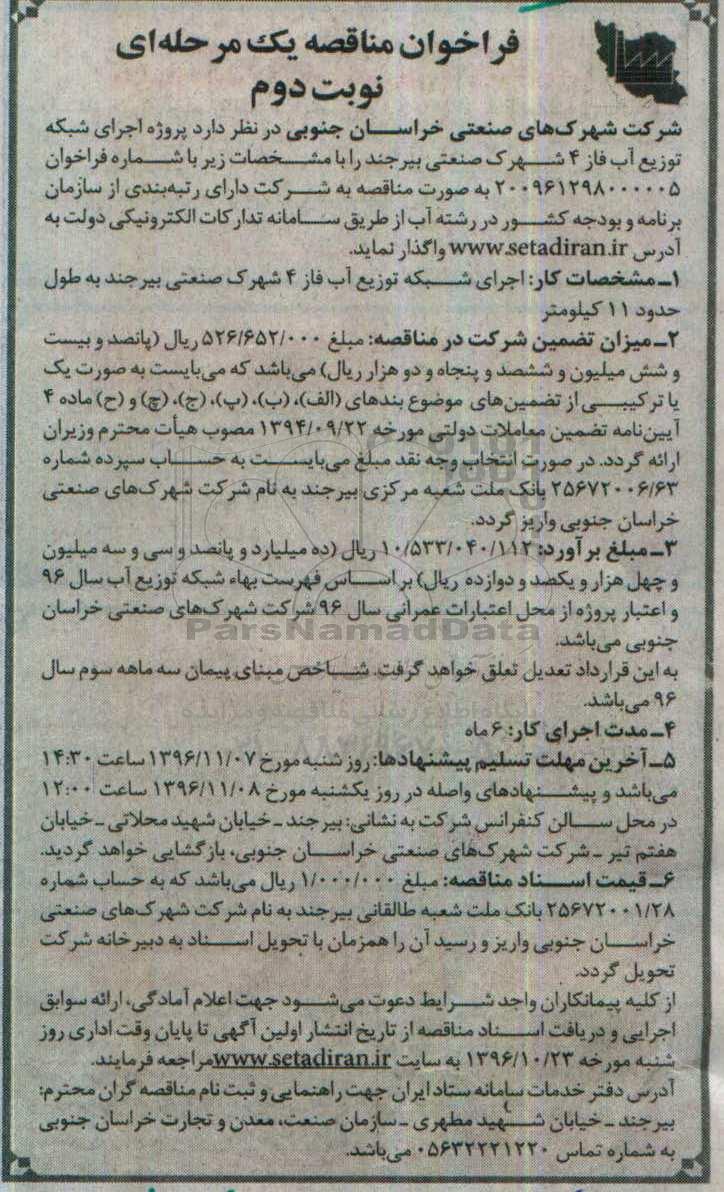 فراخوان مناقصه یک مرحله‌ای
نوبت دوم
شرکت شهرک‌های صنعتی خراسان جنوبی در نظر دارد پروژه اجرای شبکه
توزیع آب فاز ۴ شهرک صنعتی بیرجند را با مشخصات زیر با شماره فراخوان
۲۰۰۹۶۱۲۹۸۰۰۰۰۰۵ به صورت مناقصه به شرکت دارای رتبه‌بندی از سازمان
برنامه و بودجه کشور در رشته آب از طریق سامانه تدارکات الکترونیکی دولت به
آدرس www.setadiran.ir واگذار نماید.
۱ـ مشخصات کار: اجرای شبکه توزیع آب فاز ۴ شهرک صنعتی بیرجند به طول
حدود ۱۱ کیلومتر
۲ـ میزان تضمین شرکت در مناقصه: مبلغ ۵۲۶/۶۵۲/۰۰۰ ریال (پانصد و بیست
و شش میلیون و ششصد و پنجاه و دو هزار ریال) می‌باشد که می‌بایست به صورت یک
یا ترکیبی از تضمین‌های موضوع بندهای (الف)، (ب)، (پ)، (ج)، (چ) و (ح) ماده ۴
آیین‌نامه تضمین معاملات دولتی مورخه ۱۳۹۴/۰۹/۲۲ مصوب هیأت محترم وزیران
ارائه گردد. در صورت انتخاب وجه نقد مبلغ می‌بایست به حساب سپرده شماره
۲۵۶۷۲۰۰۶/۶۳ بانک ملت شعبه مرکزی بیرجند به نام شرکت شهرک‌های صنعتی
خراسان جنوبی واریز گردد.
۳ـ مبلغ برآورد: ۱۰/۵۳۳/۰۴۰/۱۱۲ ریال (ده میلیارد و پانصد و سی و سه میلیون
و چهل هزار و یکصد و دوازده ریال) بر اساس فهرست بهاء شبکه توزیع آب سال ۹۶
و اعتبار پروژه از محل اعتبارات عمرانی سال ۹۶ شرکت شهرک‌های صنعتی خراسان
جنوبی می‌باشد.
ParsNamadData
به این قرارداد تعدیل تعلق خواهد گرفت. شاخص مبنای پیمان سه ماهه سوم سال
۹۶ می‌باشد.
۴ـ مدت اجرای کار: ۶ ماه
۵ـ آخرین مهلت تسلیم پیشنهادها: روز شنبه مورخ ۱۳۹۶/۱۱/۰۷ ساعت ۱۴:۳۰
می‌باشد و پیشنهادهای واصله در روز یکشنبه مورخ ۱۳۹۶/۱۱/۰۸ ساعت ۱۲:۰۰
در محل سالن کنفرانس شرکت به نشانی: بیرجند ـ خیابان شهید محلاتی ـ خیابان
هفتم تیر ـ شرکت شهرک‌های صنعتی خراسان جنوبی، بازگشایی خواهد گردید.
۶ـ قیمت اسناد مناقصه: مبلغ ۱/۰۰۰/۰۰۰ ریال می‌باشد که به حساب شماره
۲۵۶۷۲۰۰۱/۲۸ بانک ملت شعبه طالقانی بیرجند به نام شرکت شهرک‌های صنعتی
خراسان جنوبی واریز و رسید آن را همزمان با تحویل اسناد به دبیرخانه شرکت
تحویل گردد.
از کلیه پیمانکاران واجد شرایط دعوت می‌شود جهت اعلام آمادگی، ارائه سوابق
اجرایی و دریافت اسناد مناقصه از تاریخ انتشار اولین آگهی تا پایان وقت اداری روز
شنبه مورخه ۱۳۹۶/۱۰/۲۳ به سایت www.setadiran.ir مراجعه فرمایند.
آدرس دفتر خدمات سامانه ستاد ایران جهت راهنمایی و ثبت نام مناقصه گران محترم:
بیرجند ـ خیابان شهید مطهری ـ سازمان صنعت، معدن و تجارت خراسان جنوبی
به شماره تماس ۰۵۶۳۲۲۲۱۲۲۰ می‌باشد.